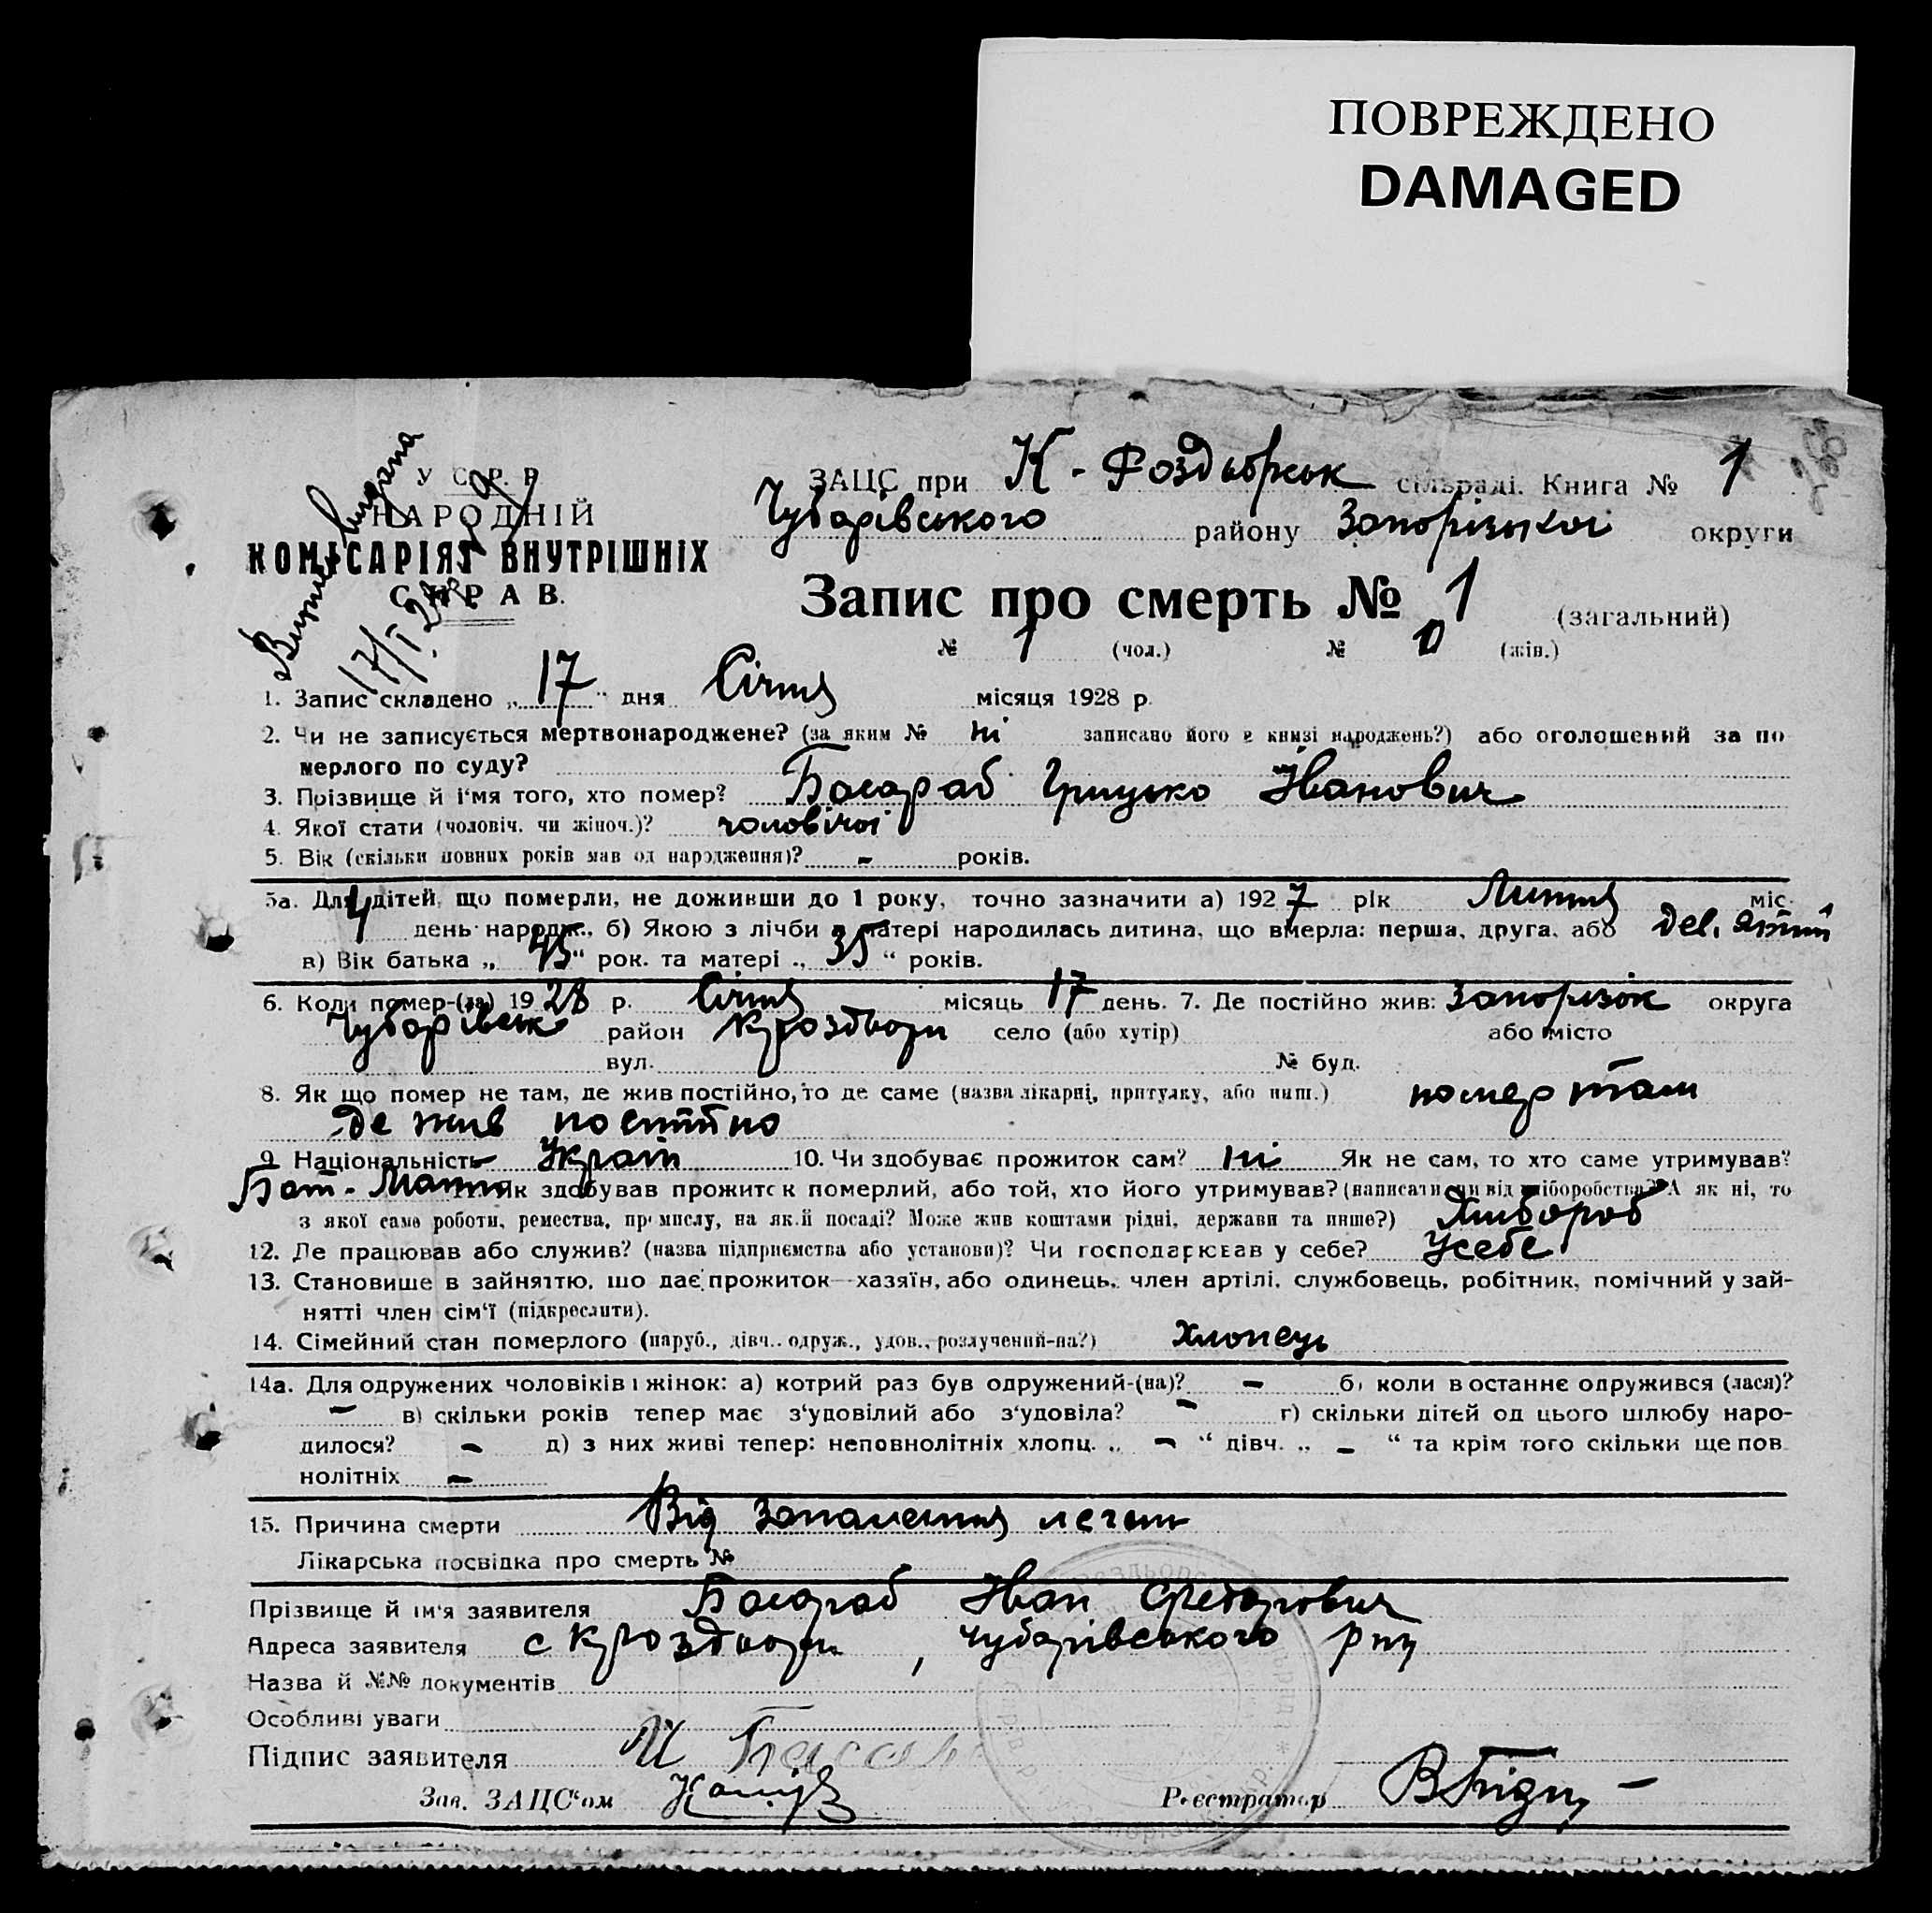 ПОВРЕЖДЕНО
DAMAGED
У С. Р. Р.
НАРОДНІЙ
КОМІСАРІЯТ ВНУТРІШНІХ
СПРАВ.
Виписка видана
17/I 28 р.
ЗАЦС при К - Роздорськ сільраді. Книга № 1
Чубарівського району Запорізької округи
Запис про смерть № 1 (загальний)
№ 1 (чол.) № 0 (жін.)
1. Запис складено „ 17 “ дня Січня місяця 1928 р.
2. Чи не записується мертвонароджене? (за яким № ні записано його в книзі народжень?) або оголошений за по
мерлого по суду?
3. Прізвище й і‘мя того, хто помер? Басараб Грицько Іванович
4. Якої стати (чоловіч. чи жіноч.)? чоловічої
5. Вік (скільки повних років мав од народження)? - років.
5а. Для дітей, що померли, не доживши до 1 року, точно зазначити а) 1927 рік Липня міс.
4 день народж., б) Якою з лічби в матері народилась дитина, що вмерла: перша, друга, або
в) Вік батька „ 45 “ рок. та матері „ 35 “ років.
6. Коли помер-(ла) 1928 р. Січня місяць 17 день. 7. Де постійно жив: Запорізьк округа
Чубарівськ район Кроздори село (або хутір) або місто
вул. № буд.
8. Як що помер не там, де жив постійно, то де саме (назва лікарні, притулку, або инш.) помер там
де жив постійно
9. Національність Украін 10. Чи здобуває прожиток сам? ні Як не сам, то хто саме утримував?
Бат. - Мати 11. Як здобував прожиток померлий, або той, хто його утримував? (написати, чи від хліборобства? А як ні, то
з якої саме роботи, ремества, промислу, на якій посаді? Може жив коштами рідні, держави та инше?) Хлібороб
12. Де працював або служив? (назва підприємства або установи)? Чи господарював у себе? Усебе
13. Становище в зайняттю, що дає прожиток—хазяїн, або одинець, член артілі, службовець, робітник, помічний у зай-
нятті член сім‘ї (підкреслити).
14. Сімейний стан померлого (паруб., дівч., одруж., удов., розлучений-на?) хлопець
14а. Для одружених чоловіків і жінок: а) котрий раз був одружений-(на)? - б) коли в останнє одружився (лася)?
- в) скільки років тепер має з‘удовілий або з‘удовіла? - г) скільки дітей од цього шлюбу наро-
дилося? - д) з них живі тепер: неповнолітніх хлопц. „ - “ дівч. „ - “ та крім того скільки ще пов
нолітніх -
15. Причина смерти Від запалення легень
Лікарська посвідка про смерть №
Прізвище й ім‘я заявителя Басараб Іван Федорович
Адреса заявителя с Кроздори, Чубарівського р-ну
Назва й №№ документів
Особливі уваги
Підпис заявителя И Басар
Зав. ЗАЦС‘ом
Реєстратор